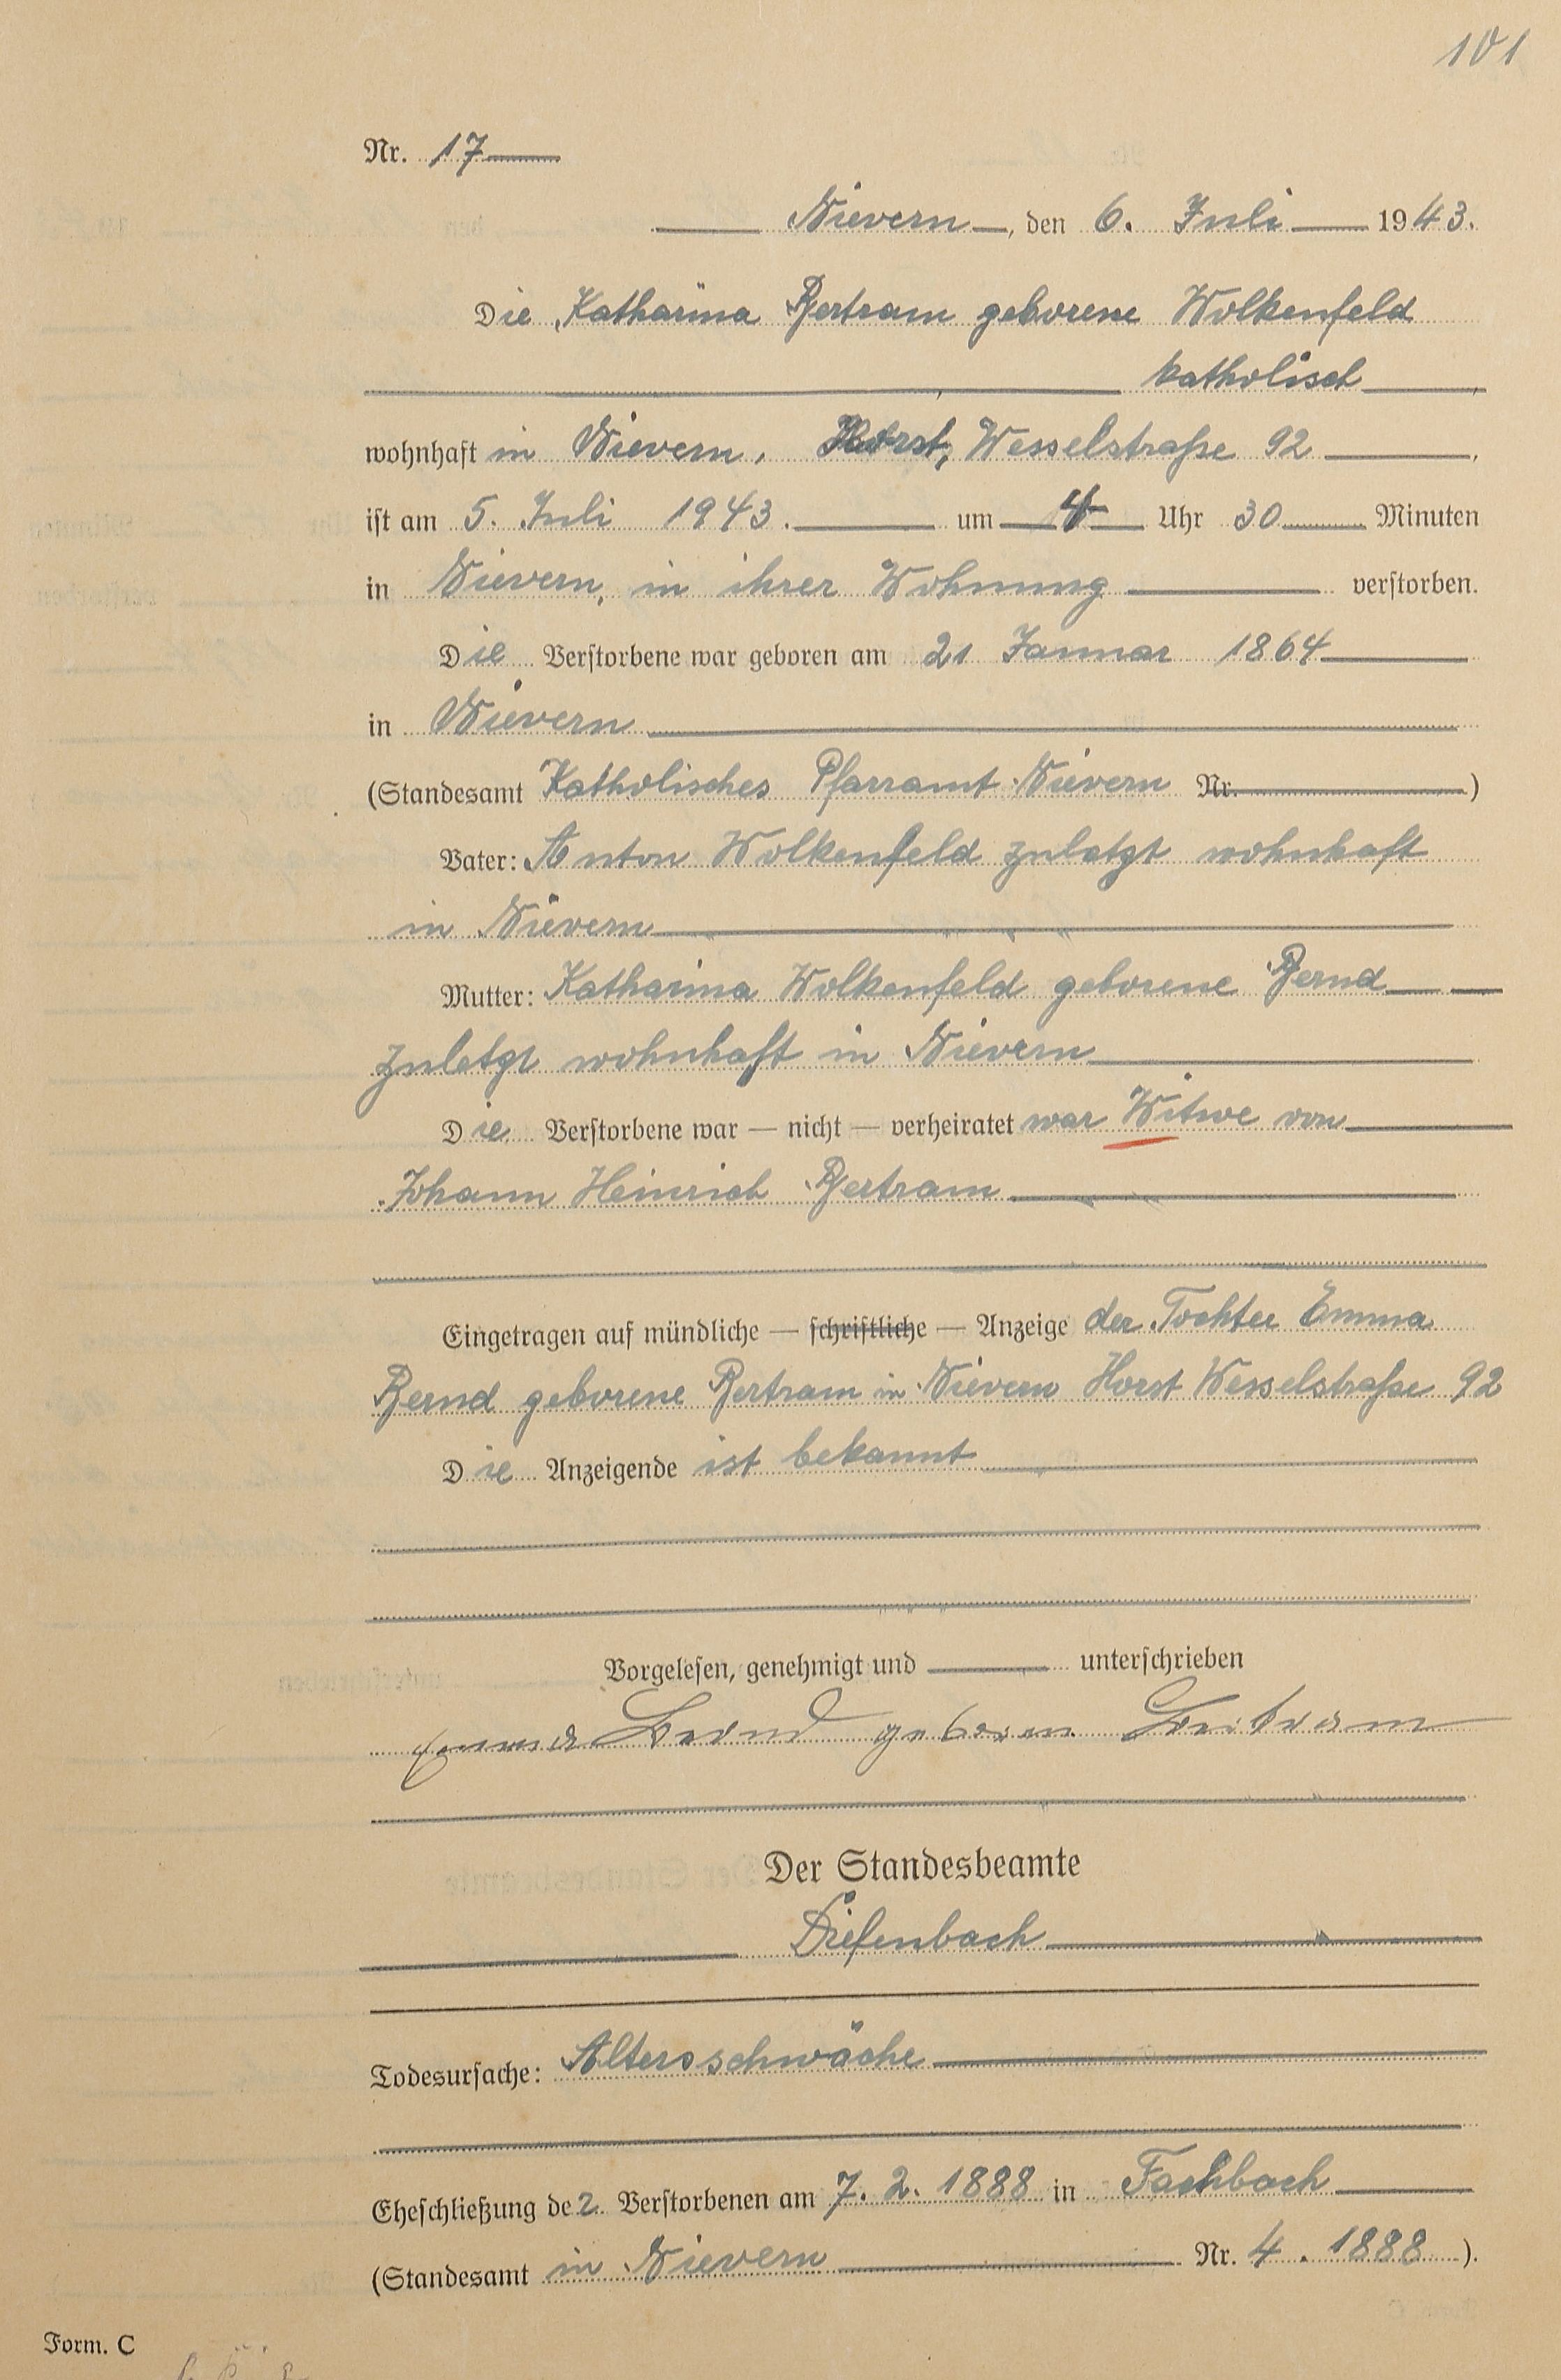 101
Nr. 17
Nievern, den 6. Juli 1943.
Die Katharina Bertram geborene Wolkenfeld
katholisch
wohnhaft in Nievern, Horst, Wesselstraße 92,
ist am 5. Juli 1943. um 4 Uhr 30 Minuten
in Nievern, in ihrer Wohnung verstorben.
Die Verstorbene war geboren am 21 Januar 1864
in Nievern
(Standesamt Katholisches Pfarramt Nievern Nr.)
Vater: Anton Wolkenfeld zuletzt wohnhaft
in Nievern
Mutter: Katharina Wolkenfeld geborene Bernd
zuletzt wohnhaft in Nievern
Die Verstorbene war — nicht — verheiratet war Witwe von
Johann Heinrich Bertram
Eingetragen auf mündliche — schriftliche — Anzeige der Tochter Emma
Bernd geborene Bertram in Nievern Horst Wesselstraße 92
Die Anzeigende ist bekannt
Vorgelesen, genehmigt und unterschrieben
Emma Bernd geboren Bertram
Der Standesbeamte
Diefenbach
Todesursache: Altersschwäche
Eheschließung der Verstorbenen am 7. 2. 1888 in Fachbach
(Standesamt in Nievern Nr. 4. 1888).
Form. C